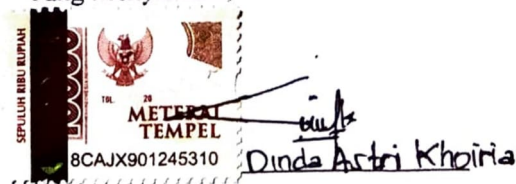 SEPULUH RIBU RUPIAH
10000
TGL. 20
METERAI
TEMPEL
8CAJX901245310
Dinda Astri Khoiria